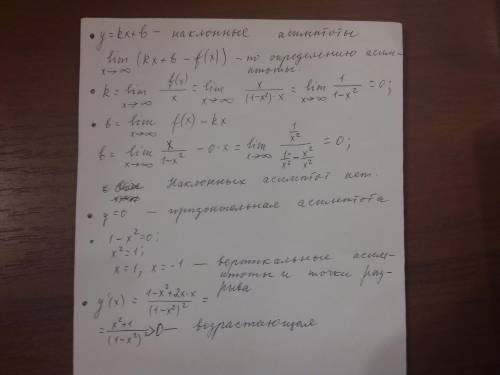 • y=kx+в – наклонные асимптоты
lim x→∞ (kx+в – f(x)) – по определению асимптоты.
• k = lim x→∞ f(x)/x = lim x→∞ x/((1-x²)·x) = lim x→∞ 1/(1-x²) = 0;
• в = lim x→∞ f(x) – kx
в = lim x→∞ x/(1-x²) – 0·x = lim x→∞ (1/x²)/(1/x² – x²/x²) = 0;
Наклонных асимптот нет.
• y=0 – горизонтальная асимптота
• 1-x²=0;
x²=1;
x=1, x=-1 – вертикальные асимптоты и точки разрыва
• y'(x) = (1-x²+2x·x)/(1-x²)² =
= (x²+1)/(1-x²)² > 0 – возрастающая